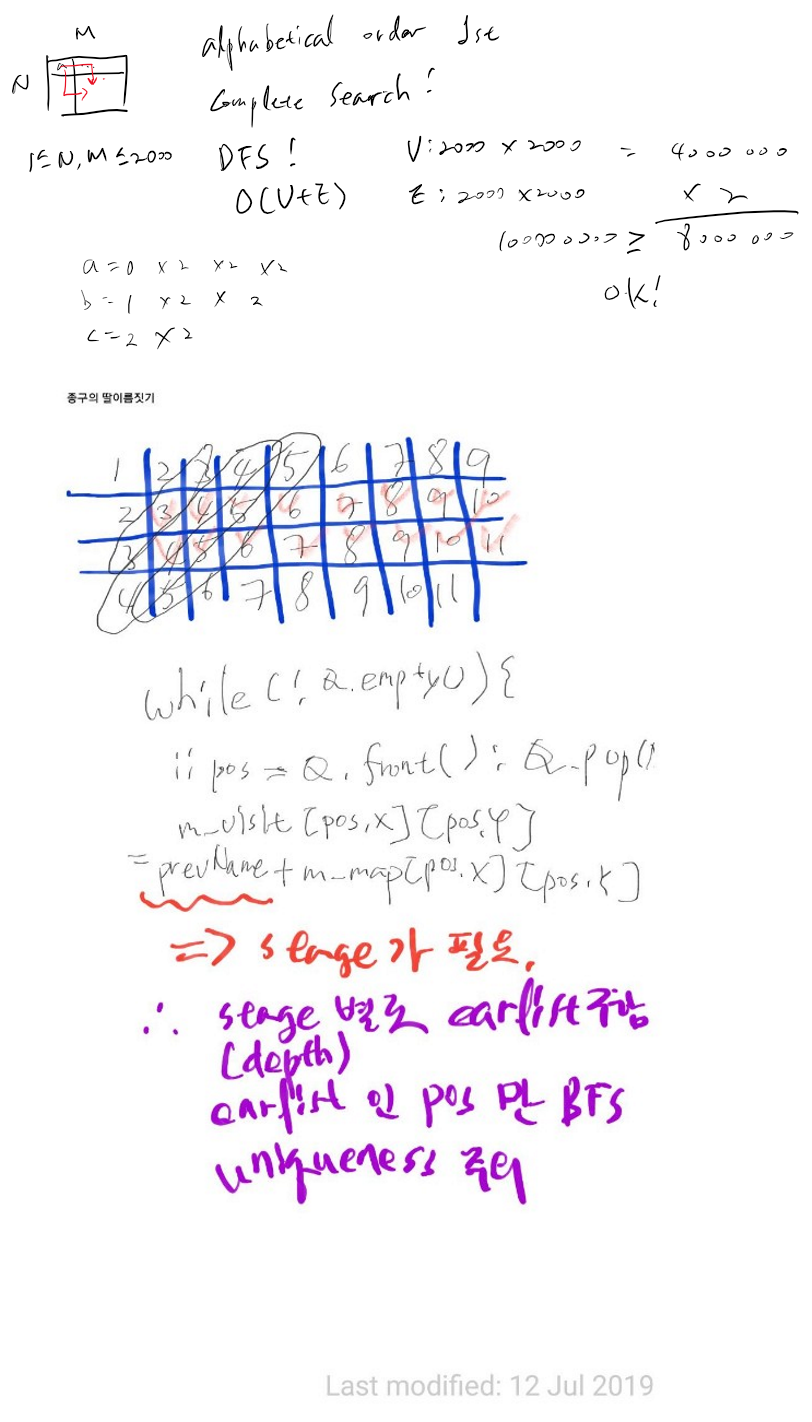 M
alphabetical order 1st
N
a
Complete Search!
1≤N,M≤2000 DFS! V:2000 x 2000 = 4000 000
O(V+E) E: 2000 x2000 x 2
100000000 ≥ 8000 000
OK!
a=0 x2 x2 x2
b=1 x2 x 2
c=2 x2
종구의 딸이름짓기
1 2 3 4 5 6 7 8 9
2 3 4 5 6 7 8 9 10
3 4 5 6 7 8 9 10 11
4 5 6 7 8 9 10 11
while(!Q.empty()){
ii pos = Q.front(); Q.pop()
m_visit[pos.x][pos.y]
= prevName + m_map[pos.x][pos.y]
=> stage가 필요.
∴ stage 별로 earlist구함
(depth)
earlist 인 pos 만 BFS
uniqueness 주의
Last modified: 12 Jul 2019